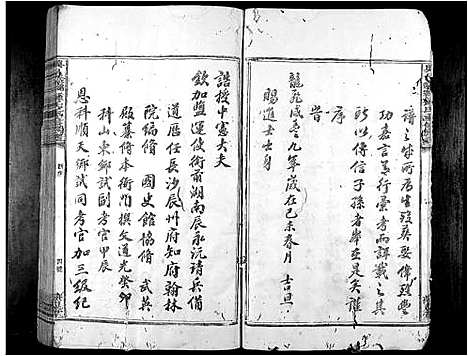 譜之味所居生歿葬娶偉蹟豐
功嘉言善行彙者而詳載之其
所以傳信子孫者举在是矣謹
序
旹
龍飛咸豐九年歲在己未春月 吉旦
賜進士出身
誥授中憲大夫
欽加鹽運使銜前湖南辰永沅靖兵備
道歷任長沙辰州府知府翰林
院編修 國史館協修 武英
殿纂修本衙門撰文道光癸卯
科山東鄉試副考官甲辰
恩科順天鄉試同考官加三級紀